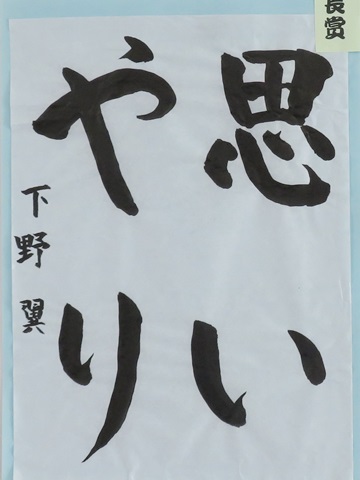 思い
やり
下野 翼
長賞